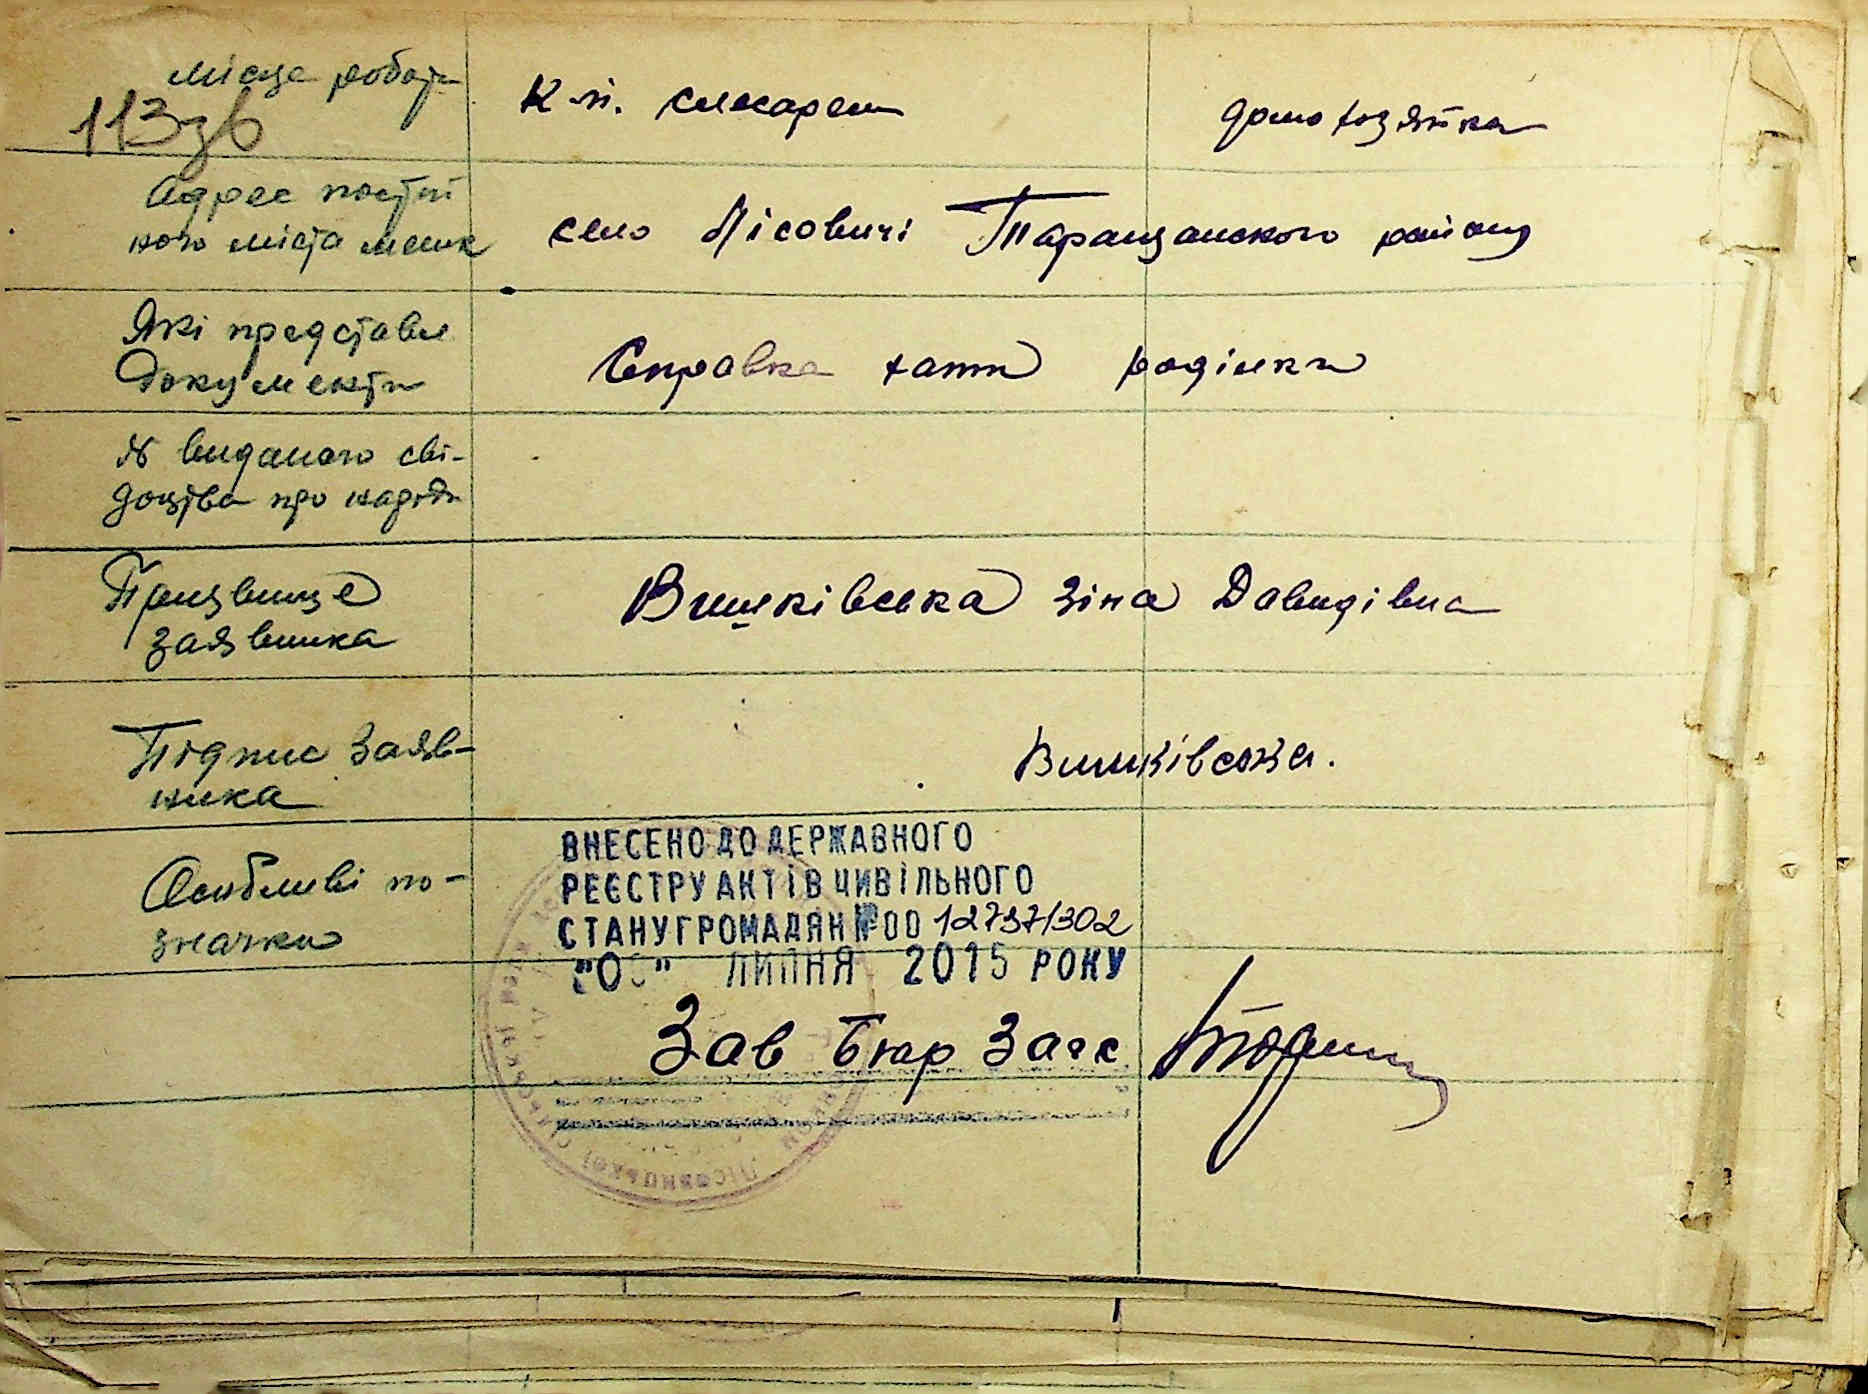 Місце роботи
113зв
К-п. слюсарем
домохозяйка
Адрес постій
ного міста мешк
село Лісовичі Таращанського району
Які представл
документи
Справка хати роділки
№ виданого сві-
доцтва про народж
Прізвище
заявника
Вишківська Зіна Давидівна
Підпис заяв-
ника
Вишківська.
Особливі по-
значки
ВНЕСЕНО ДО ДЕРЖАВНОГО
РЕЄСТРУ АКТІВ ЦИВІЛЬНОГО
СТАНУ ГРОМАДЯН №00 12737/302
ЛИПНЯ 2015 РОКУ
Зав Бюр Загс
Лісовицької сільської ради